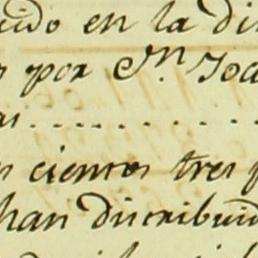 cido en la di
por Jn. Joa
as..........
cientos tres p
han distribuid